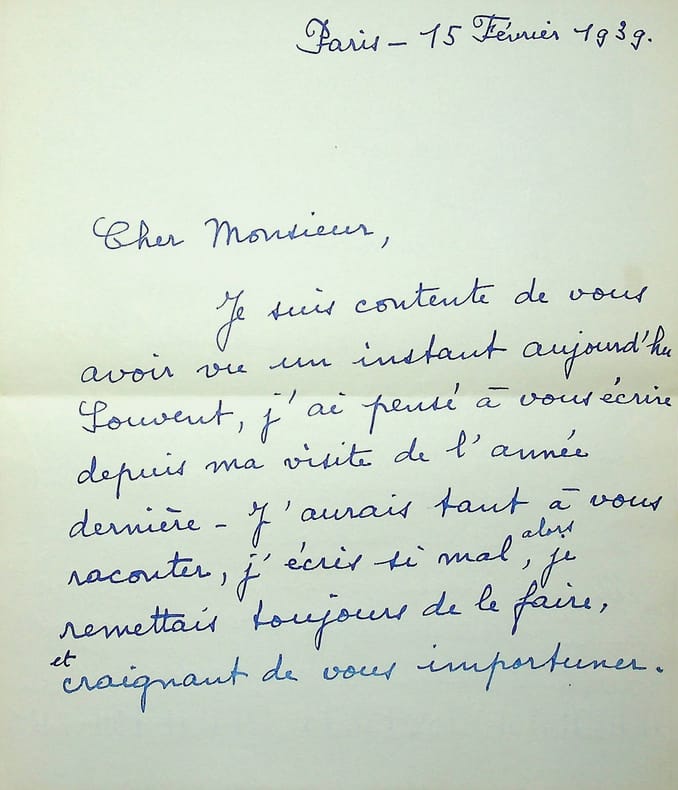 Paris - 15 Février 1939.
Cher Monsieur,
Je suis contente de vous
avoir vu un instant aujourd'hu
Souvent, j'ai pensé à vous écrire
depuis ma visite de l'année
dernière - J'aurais tant à vous
raconter, j'écris si mal, alors je
remettais toujours de le faire,
et craignant de vous importuner.